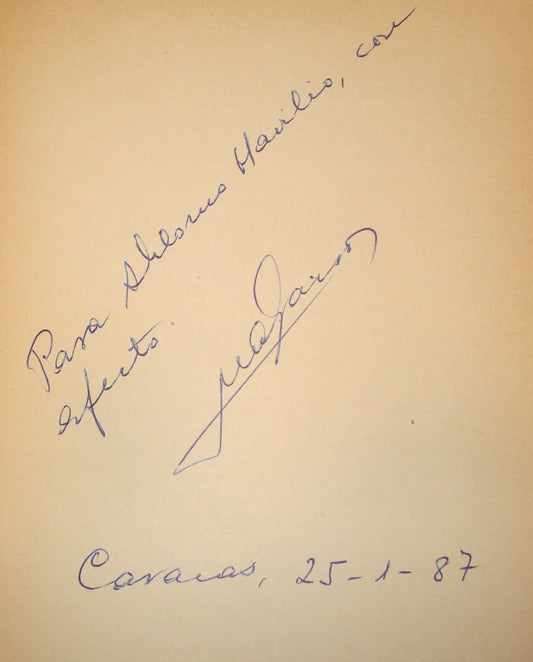 Para Shlomo Havilio, con
afecto.
Caracas, 25-1-87